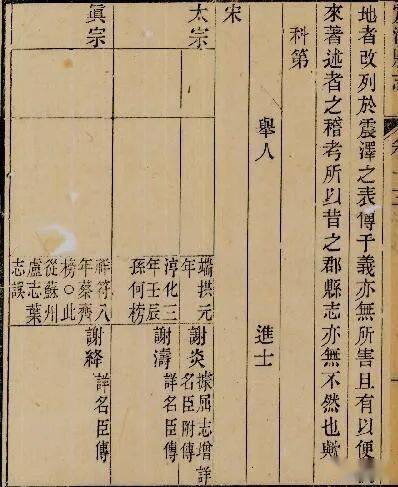 地者改列於震澤之表傳于義亦無所害且有以便
來著述者之稽考所以昔之郡縣志亦無不然也歟
科第
舉人
進士
宋
太宗
端拱元
年
謝炎
據屈志增詳
名臣附傳
淳化三
年壬辰
孫何榜
謝濤
詳名臣傳
眞宗
祥符八
年蔡齊
榜○此
從蘇州
盧志葉
志誤
謝絳
詳名臣傳